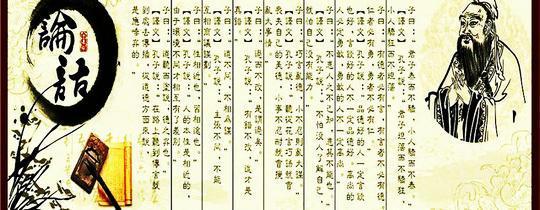 子曰：“君子泰而不驕，小人驕而不泰。”
【譯文】孔子說：“君子坦蕩而不驕狂，
小人驕狂而不坦蕩。”
子曰：“有德者必有言，有言者不必有德。
仁者必有勇，勇者不必有仁。”
【譯文】孔子說：“品德好的人一定言談
也好，言談好的人不一定品德好。高尚的
人必定勇敢，勇敢的人不一定高尚。”
子曰：“不患人之不己知，患其不能也。”
【譯文】孔子說：“不怕沒人了解自己，
就怕自己沒有能力。”
子曰：“巧言亂德，小不忍則亂大謀。”
【譯文】孔子說：“聽從花言巧語就會
喪失自己的美德，小事不忍耐就會攪
亂大事情。”
子曰：“過而不改，是謂過矣！”
【譯文】孔子說：“有錯不改，這才是
真錯。”
子曰：“道不同，不相為謀。”
【譯文】孔子說：“主張不同，不能
互相商議謀劃。”
子曰：“性相近也，習相遠也。”
【譯文】孔子說：“人的本性是相近的，
由於環境不同才相互有了差別。”
子曰：“道聽而塗說，德之棄也！”
【譯文】孔子說：“在路上聽到傳言就
到處去傳播，從道德方面來說，
是應唾棄的。”
論語